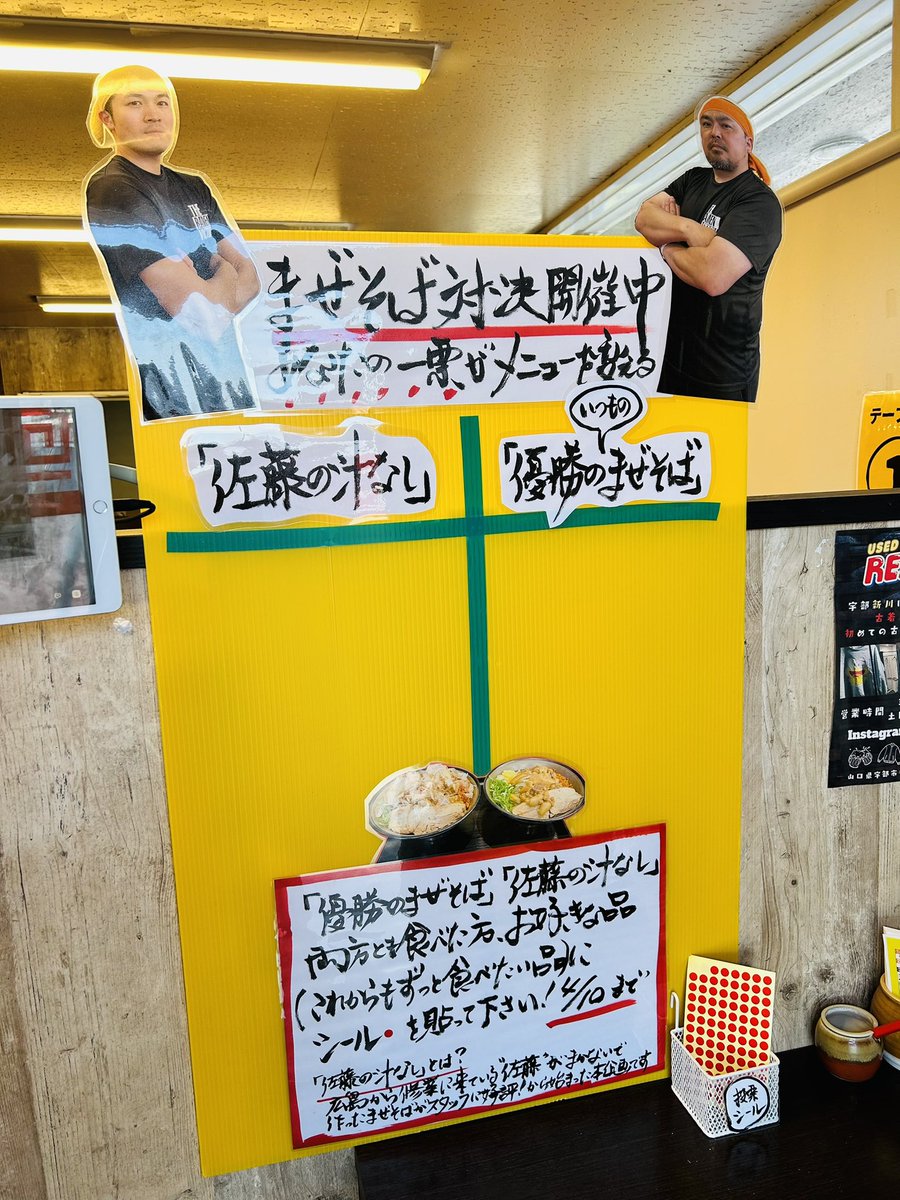 まぜそば対決開催中
あなたの一票がメニューを変える
いつもの
「佐藤の汁なし」
「優勝のまぜそば」
「優勝のまぜそば」「佐藤の汁なし」
両方とも食べた方、お好きな品
(これからもずっと食べたい品)に
シール●を貼って下さい! 4/10まで
「佐藤の汁なし」とは?
広島から修業に来ている"佐藤"がまかないで
作ったまぜそばがスタッフに好評!から始まった本企画です
投票
シール
テーブ
1
USED
RE
宇部新川
古着
初めての古
営業時間
土
Instagra
山口県宇部市